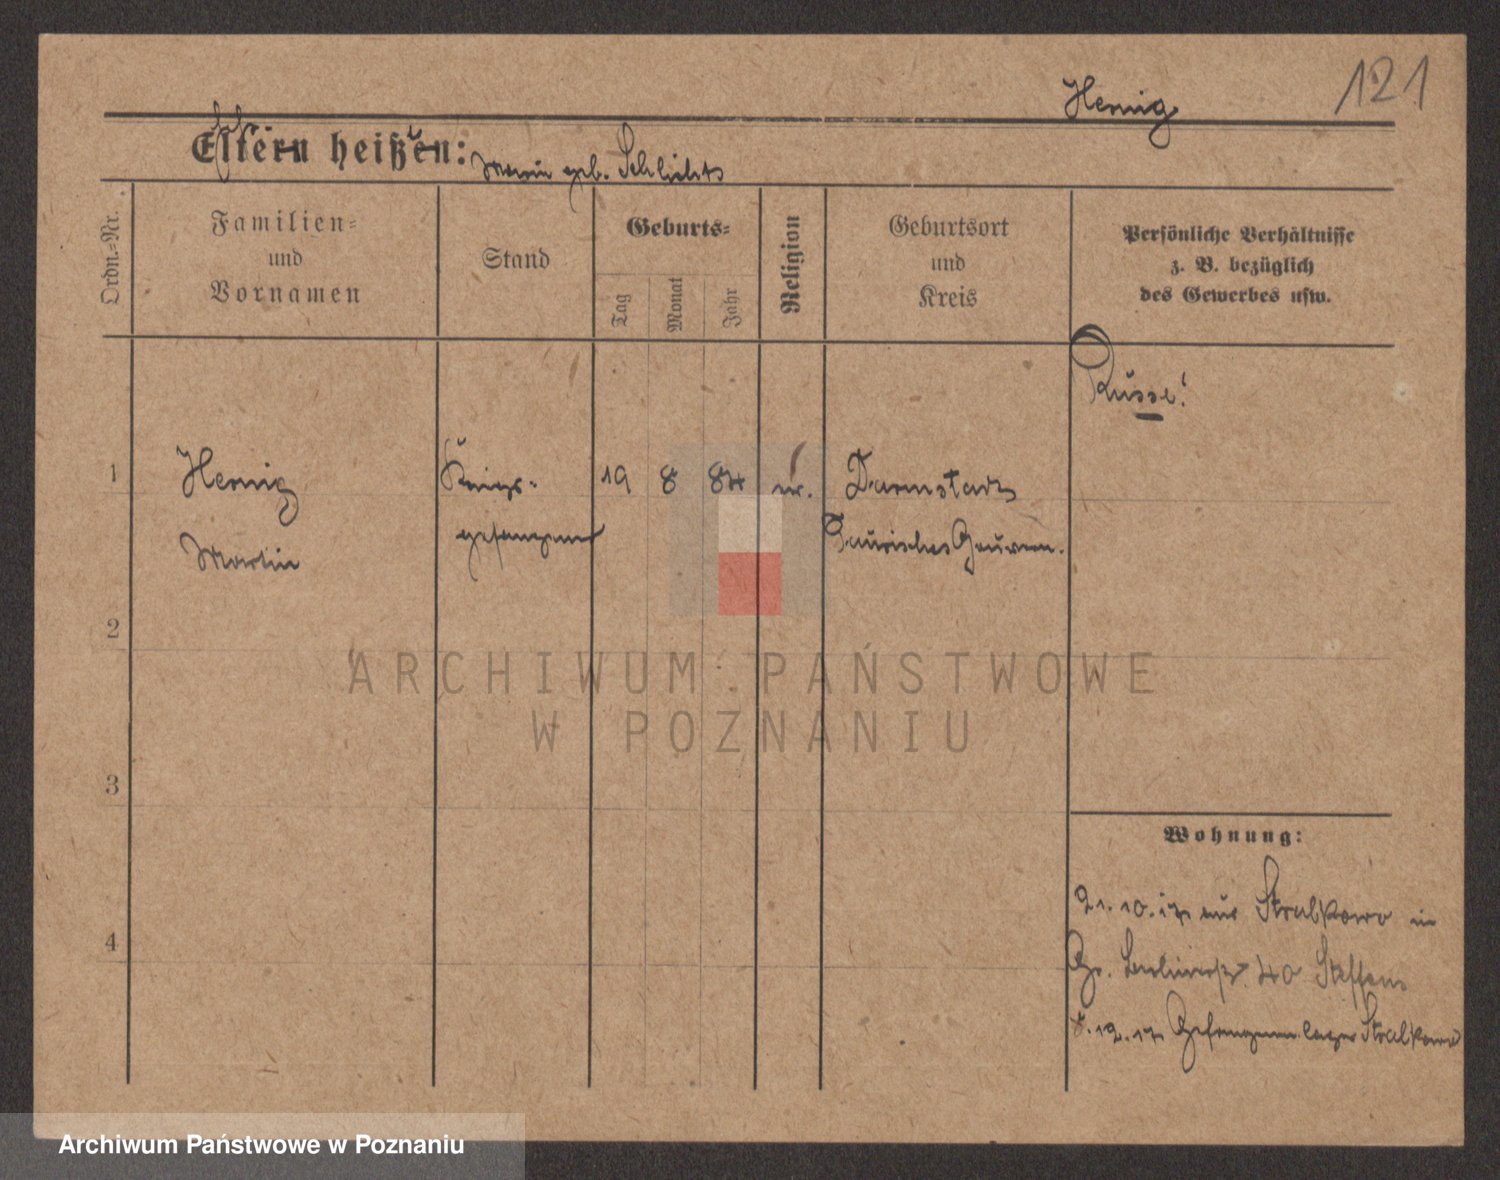 121
Hennig
Eltern heißen:
Maria geb. Schlichts
Ordn.-Nr.
Familien-
und
Vornamen
Stand
Geburts-
Tag
Monat
Jahr
Religion
Geburtsort
und
Kreis
Persönliche Verhältnisse
z. B. bezüglich
des Gewerbes usw.
Russe!
1
Hennig
Kriegs-
19 8 84
Darmstadt
Martin
gefangener
Taurisches Gouvern.
2
ARCHIWUM PAŃSTWOWE
W POZNANIU
3
Wohnung:
21.10.17 aus Stralkowo in
4
Gr. Berlinerstr. 40 Steffens
8.12.17 Gefangenenlager Stralkowo
Archiwum Państwowe w Poznaniu